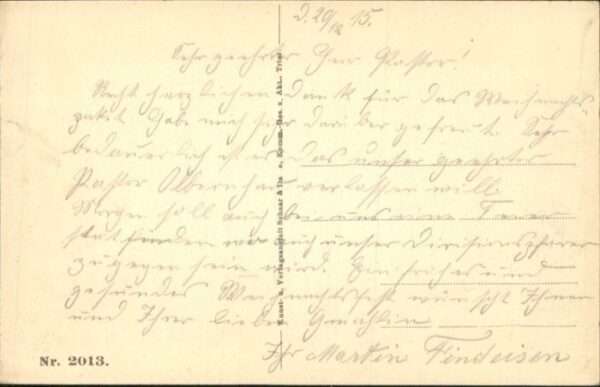 d. 20/12 15.
Sehr geehrter Herr Pastor!
Recht herzlichen dank für das Weihnachts-
paket. Habe mich sehr darüber gefreut. Sehr
bedauerlich ist es das unser geehrter
Pastor Olbernhau verlassen will.
Morgen soll auch bei uns eine Feier
statfinden wo auch unser Divisionspfarrer
zugegen sein wird. Ein frohes und
gesundes Weihnachtsfest wünscht Ihnen
und Ihrer lieben Gmahlin
Ihr Martin Findeisen
Kunst- u. Verlagsanstalt Schaar & Dathe, Komm.-Ges. a. Akt., Trier
Nr. 2013.